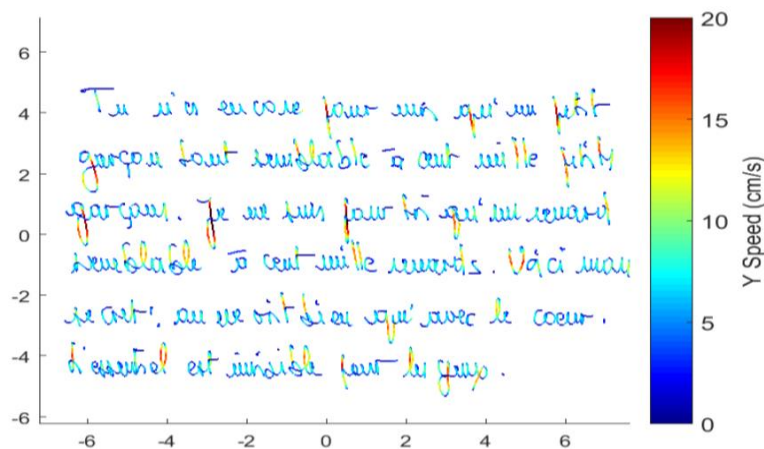 Tu n'es encore pour moi qu'un petit
garçon tout semblable à cent mille petits
garçons. Je ne suis pour toi qu'un renard
semblable à cent mille renards. Voici mon
secret. on ne voit bien qu'avec le coeur.
L'essentiel est invisible pour les yeux.
6
4
2
0
-2
-4
-6
-6 -4 -2 0 2 4 6
20
15
10
5
0
Y Speed (cm/s)